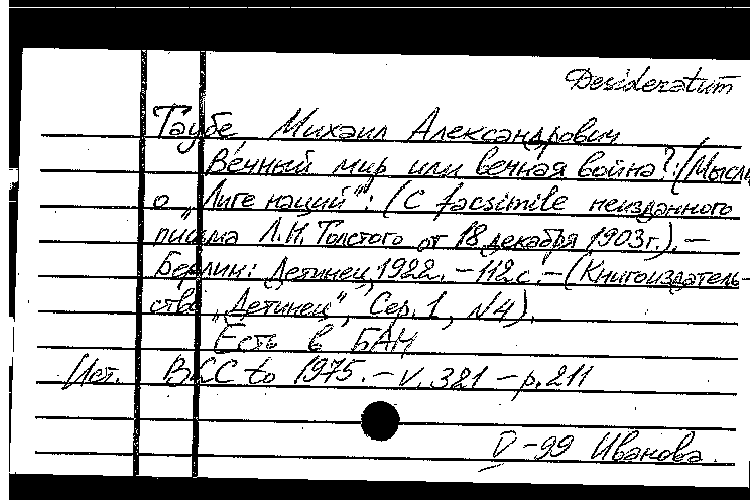 Desideratum
Таубе Михаил Александрович
Вечный мир или вечная война?: (Мысли
о „Лиге наций“): (С facsimile неизданного
письма Л.Н. Толстого от 18 декабря 1903 г.). –
Берлин: Детинец, 1922. – 112 с. – (Книгоиздатель-
ство „Детинец“, Сер. 1, №4).
Есть в БАН
Ист. BLC to 1975. – v. 321 – p. 211
V-99 Иванова.